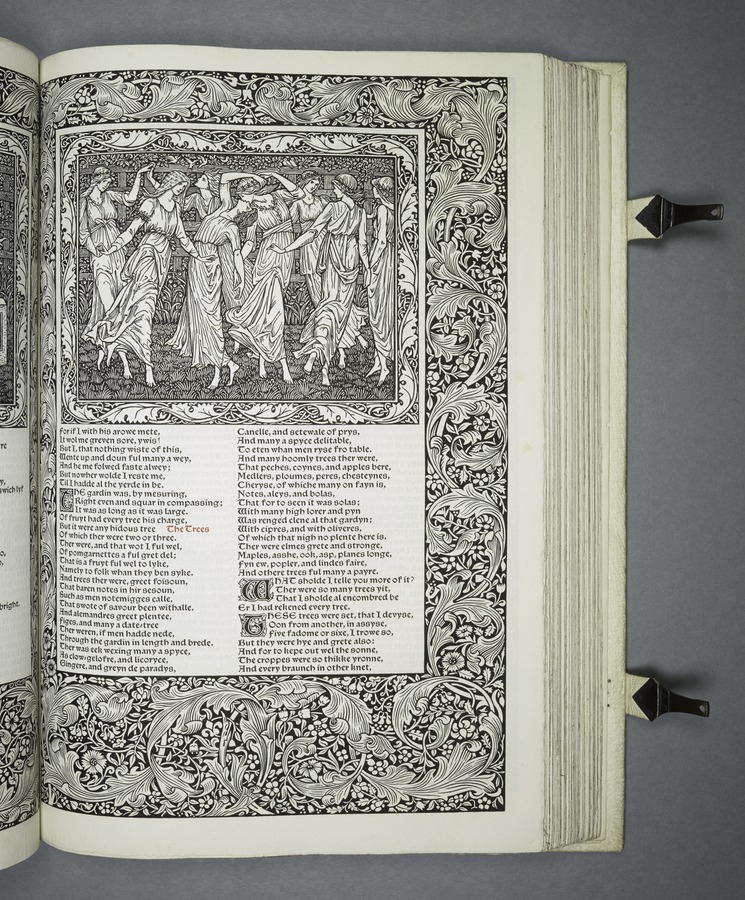 rc
y,
swich lyf
o,
bright.
For if I with his arowe mete,
It wol me greven sore, ywis!
But I, that nothing wiste of this,
Wente up and doun ful many a wey,
And he me folwed faste alwey;
But nowher wolde I reste me,
Til I hadde al the yerde in be.
The gardin was, by mesuring,
Right even and squar in compassing;
It was as long as it was large.
Of fruyt had every tree his charge,
But it were any hidous tree The Trees
Of which ther were two or three.
Ther were, and that wot I ful wel,
Of pomgarnettes a ful gret del;
That is a fruyt ful wel to lyke,
Namely to folk whan they ben syke.
And trees ther were, greet foisoun,
That baren notes in hir sesoun,
Such as men notemigges calle,
That swote of savour been withalle.
And alemandres greet plentee,
Figes, and many a date-tree
Ther weren, if men hadde nede,
Through the gardin in length and brede.
Ther was eek wexing many a spyce,
As clow-gelofre, and licoryce,
Gingere, and greyn de paradys,
Canelle, and setewale of prys,
And many a spyce delitable,
To eten whan men ryse fro table.
And many hoomly trees ther were,
That peches, coynes, and apples bere,
Medlers, ploumes, peres, chesteynes,
Cheryse, of whiche many on fayn is,
Notes, aleys, and bolas,
That for to seen it was solas;
With many high lorer and pyn
Was renged clene al that gardyn;
With cipres, and with oliveres,
Of which that nigh no plente here is.
Ther were elmes grete and stronge,
Maples, asshe, ook, asp, planes longe,
Fyn ew, popler, and lindes faire,
And othere trees ful many a payre.
WHAT sholde I telle you more of it?
Ther were so many trees yit,
That I sholde al encombred be
Er I had rekened every tree.
THESE trees were set, that I devyse,
Oon from another, in assyse,
Five fadome or sixe, I trowe so,
But they were hye and grete also:
And for to kepe out wel the sonne,
The croppes were so thikke yronne,
And every braunch in other knet,